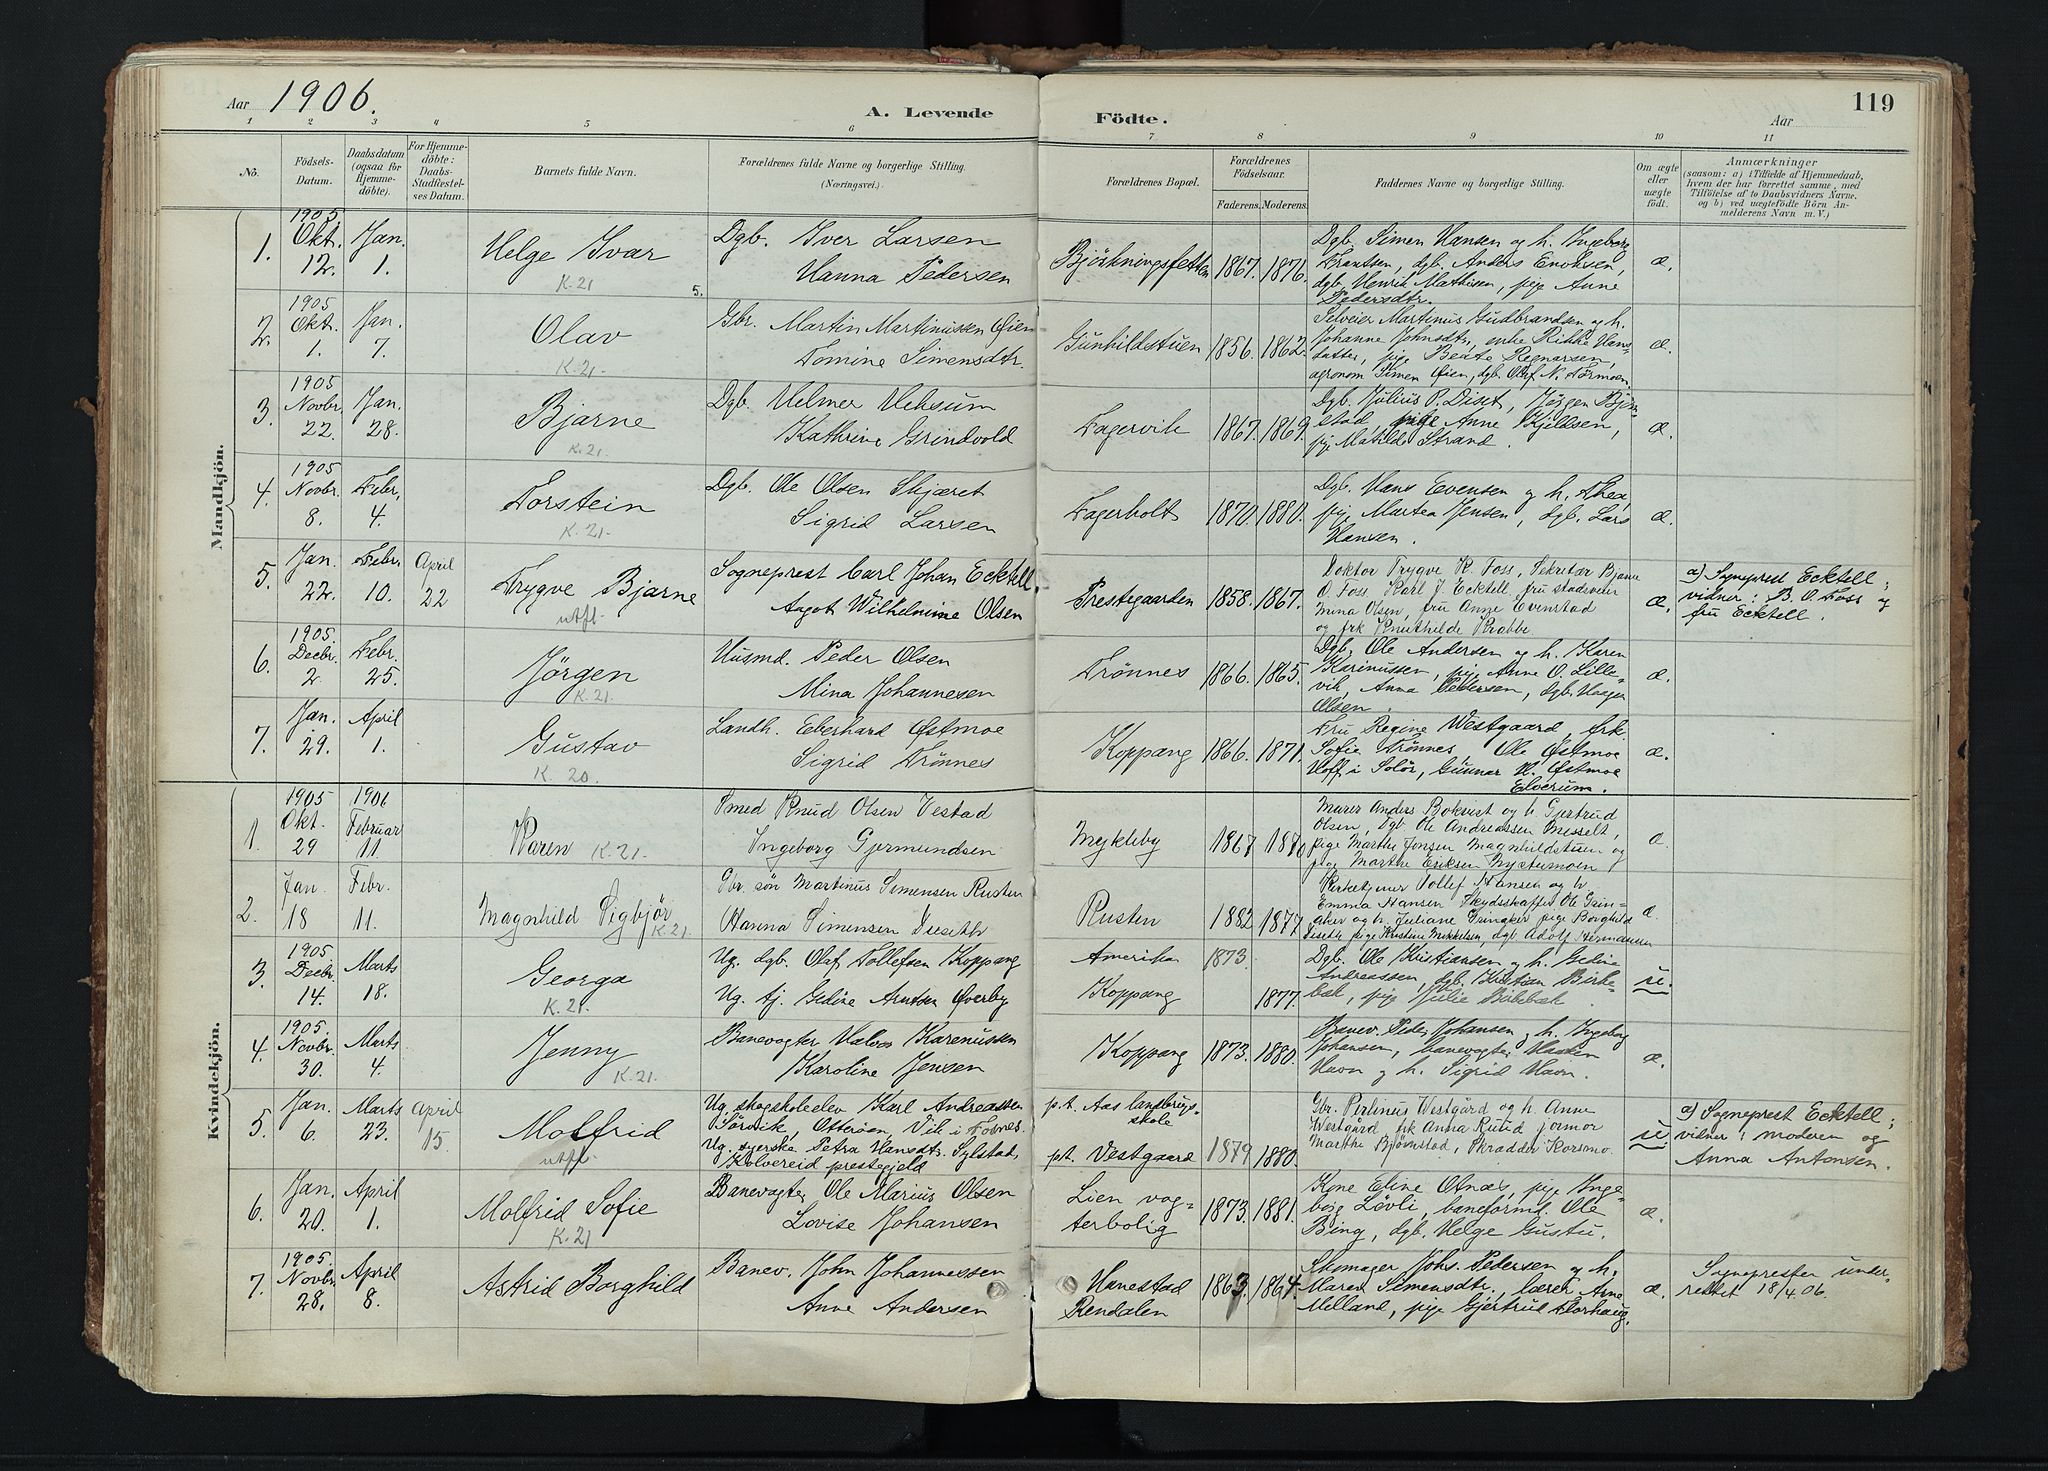 Aar 1906.
A. Levende Födte.
119
Aar
1 2 3 4 5 6 7 8 9 10 11
No.
Födsels-Datum.
Daabsdatum (ogsaa for Hjemmedöbte).
For Hjemmedöbte: Daabs-Stadfæstelses Datum.
Barnets fulde Navn.
Forældrenes fulde Navne og borgerlige Stilling.
(Næringsvei.)
Forældrenes Bopæl.
Forældrenes Födselsaar.
Faderens. Moderens.
Faddernes Navne og borgerlige Stilling.
Om ægte eller uægte födt.
Anmærkninger
(saasom: a) i Tilfælde af Hjemmedaab, hvem der har forrettet samme, med Tilföielse af to Daabsvidners Navne, og b) ved uægtefödte Börn Anmelderens Navn m. V.)
Mandkjön.
1. 1905 Okt. 12. Jan. 1. Helge Ivar K. 21
Dgb. Iver Larsen
Hanna Pedersen
1867. 1876.
Dgb. Simen Hansen og h. Ingeborg
Frantsen, dgb. Anders Enoksen,
dgb. Henrik Mathisen, pige Anne
Pedersdtr.
æ.
5.
2. 1905 Okt. 1. Jan. 7. Olav K. 21.
Gbr. Martin Martinussen Øien
Tomine Simensdtr.
Gunhildstuen 1856. 1862.
Selveier Martinus Gudbrandsen og h.
Johanne Johnsdtr, enke Rikke Hans-
datter, pige Beate Regnarsen,
agronom Simen Øien, dgb. Oluf N. Tørmoen.
æ.
3. 1905 Novbr. 22. Jan. 28. Bjarne K. 21.
Dgb. Helmer Heksum
Kathrine Grindvold
Fagervik 1867. 1869.
Dgb. Julius P. Diset, Jørgen Bjørn-
stad, pige Anne Kjildsen,
pige Matilde Strand.
æ.
4. 1905 Novbr. 8. Febr. 4. Torstein K. 21.
Dgb. Ole Olsen Skjæret
Sigrid Larsen
Fagerholt 1870. 1880.
Dgb. Hans Evensen og h. Thea,
pige Martea Jensen, dgb. Lars
Hansen.
æ.
5. Jan. 22. Febr. 10. April 22 Trygve Bjarne utfl.
Sogneprest Carl Johan Ecktell,
Aagot Wilhelmine Olsen
Prestegaarden 1858. 1867.
Doktor Trygve K. Foss, Sekretær Bjarne
O. Foss, Karl J. Ecktell, fru stadsveier
Mina Olsen, fru Anne Evenstad
og frk Knuthilde Krabbe
æ.
a) Sogneprest Ecktell;
vidner: B. O. Foss og
fru Ecktell.
6. 1905. Decbr. 2. Febr. 25. Jørgen K. 21.
Husmd. Peder Olsen
Mina Johannesen
Trønnes 1866. 1865.
Dgb. Ole Andersen og h. Karen
Karinussen, pige Anne O. Lille-
vik, Anna Pedersen, dgb. Haagen
Olsen.
æ.
7. Jan. 29. April 1. Gustav K. 20.
Landh. Eberhard Østmoe
Sigrid Trønnes
Koppang 1866. 1871.
Fru Regine Westgaard, frk.
Sofie Trønnes, Ole Østmoe
Hoff i Solør, Gunnar H. Østmoe
Elverum.
æ.
Kvindekjön.
1. 1905 Okt. 29 1906 Februar 11. Karen K. 21.
Smed Knud Olsen Vestad
Ingeborg Gjermundsen
Mykleby 1867 1870
Murer Anders Bokvist og h. Gjertrud
Olsen, Dgb. Ole Andreassen Misselt,
pige Marthe Jonsen Magnhildstuen og
pige Marthe Eriksen Nystumoen
æ.
2. Jan. 18 Febr. 11. Magnhild Sigbjør K. 21.
Gbr. søn Martinus Simensen Rusten
Hanna Simensen Disethr
Rusten 1882 1877
Kirketjener Tollef Hansen og h.
Emma Hansen Skydsskaffer Ole Grin-
aker og h. Juliane Grinaker pige Borghild
Disethr pige Kristine Mikkelsen, dgb Adolf Hermansen
æ.
3. 1905. Decbr. 14. Marts 18. Georga K. 21.
Ug. dgb. Olaf Tollefsen Koppang
Ug. tj. Gedine Arntsen Øverby
Amerika 1873.
Koppang 1877.
Dgb. Ole Kristiansen og h. Gedine
Andreassen, dgb. Kristian Birke-
bæk, pige Julie Birkebæk.
u.
4. 1905. Novbr. 30. Marts 4. Jenny K. 21.
Banevogter Halvor Karenussen
Karoline Jensen
Koppang 1873. 1880.
Banev. Peder Johansen og h. Ingeborg
Johansen, banevogter
Havn og h. Sigrid Havn.
æ.
5. Jan. 6. Marts 23. April 15 Molfrid utfl.
Ug. skogskoleelev Karl Andreassen
Sørvik, Otterøen, Vik i Fosnes.
Ug. syerske Petra Hansdtr. Sylstad,
Kolvereid prestegjeld
p.t. Aas landbrugs-
skole
p.t. Vestgaard 1879 1880.
Gbr. Perlinus Westgård og h. Anne
Westgård, frk Anna Ruud, jormor
Marthe Bjørnstad, Skradder Korsmo.
u
a) Sogneprest Ecktell;
vidner: moderen og
Anna Antonsen.
6. Jan. 20. April 1. Molfrid Sofie K. 21
Banevogter Ole Marius Olsen
Lovise Johansen
Lien vog-
terbolig 1873. 1881.
Kone Eline Otnæs, pige Inge-
borg Løvli, baneformd. Ole
Bing, dgb. Helge Gustu.
æ.
7. 1905. Novbr. 28. April 8. Astrid Borghild
Banev. John Johannessen
Anne Andersen
Hanestad
Rendalen 1863. 1864.
Skomager Johs. Pedersen og h.
Maren Simensdtr., lærer Arne
Melland, pige Gjertrud Horhaug.
æ.
Sognepresten under-
rettet 18/4 06.